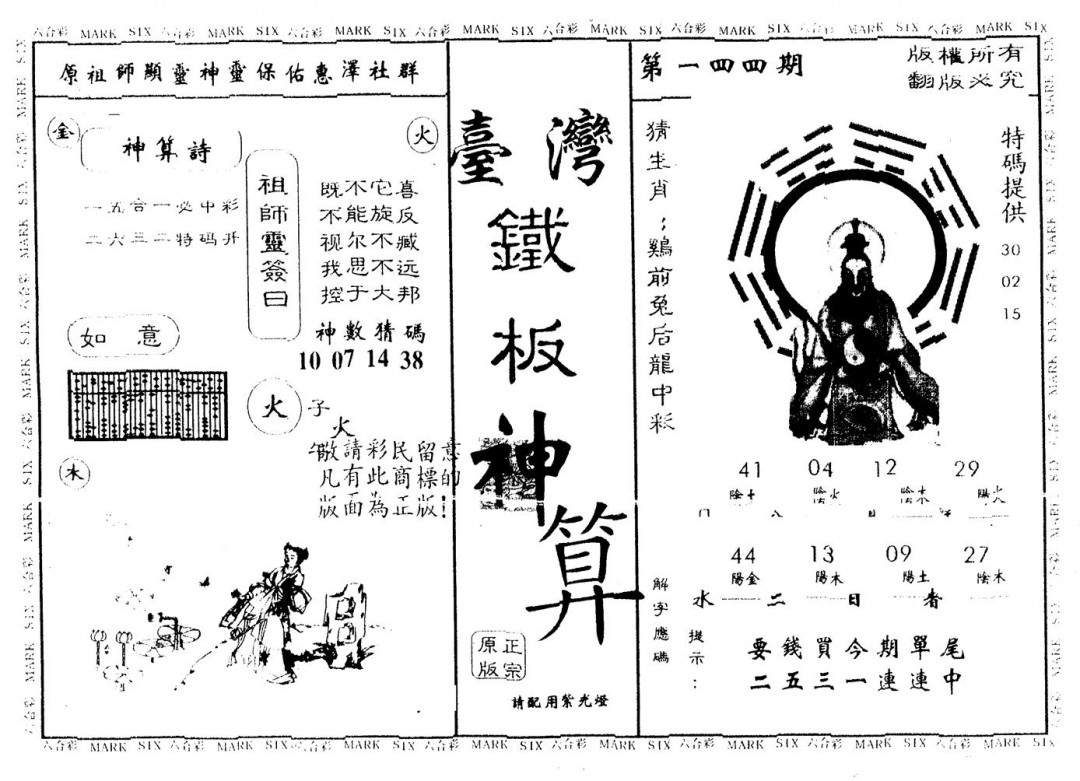 六合彩 MARK SIX 六合彩 MARK SIX 六合彩 MARK SIX 六合彩 MARK SIX 六合彩 MARK SIX 六合彩 MARK SIX 六合彩 MARK SIX 六合彩 MARK SIX
原祖師顯靈神靈保佑惠澤社群
金
神算詩
火
一五合一必中彩
二六三二特码开
祖師靈簽曰
既不它喜
不能旋反
视尔不臧
我思不远
控于大邦
神數猜碼
10 07 14 38
如意
火
子
火
敬請彩民留意
凡有此商標的
版面為正版!
木
臺灣
鐵
板
神
算
正宗
原版
請配用紫光燈
第一四四期
版權所有
翻版必究
猜生肖:鷄前兔后龍中彩
特碼提供
30
02
15
41 04 12 29
陰土 陰火 陰木 陽火
44 13 09 27
陽金 陽木 陽土 陰木
水 二 日 者
解字應碼
提示:
要錢買今期單尾
二五三一連連中
六合彩 MARK SIX 六合彩 MARK SIX 六合彩 MARK SIX 六合彩 MARK SIX 六合彩 MARK SIX 六合彩 MARK SIX 六合彩 MARK SIX 六合彩 MARK SIX